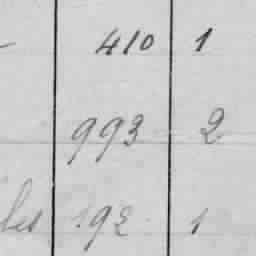 410 1
993 2
les 192 1